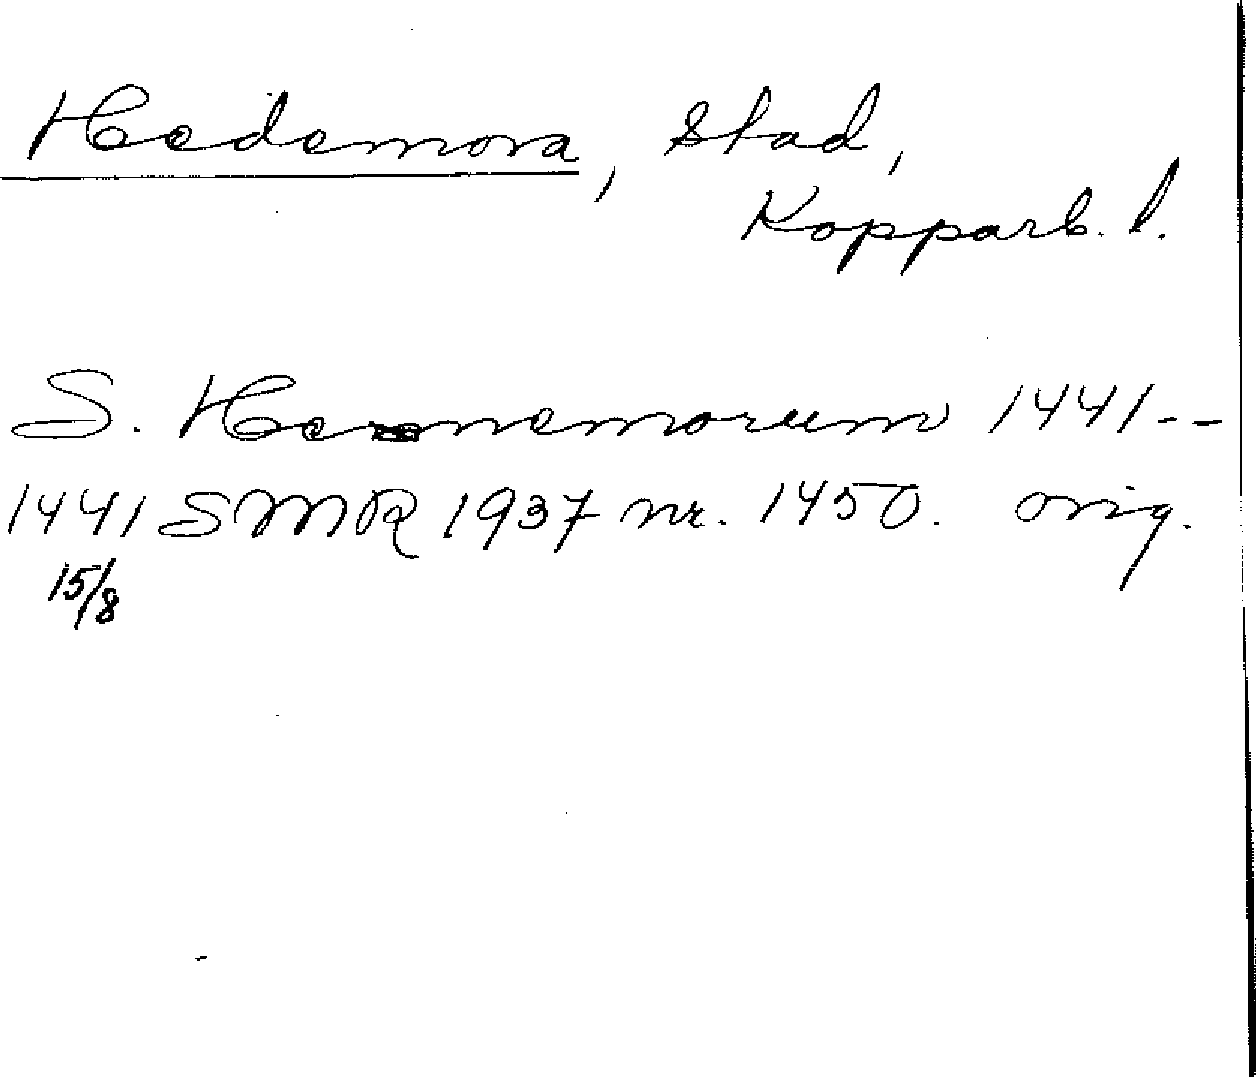 Hedemora, Stad,
Kopparb. l.
S. Henemorum 1441--
1441 SMR 1937 nr. 1450. orig.
15/8